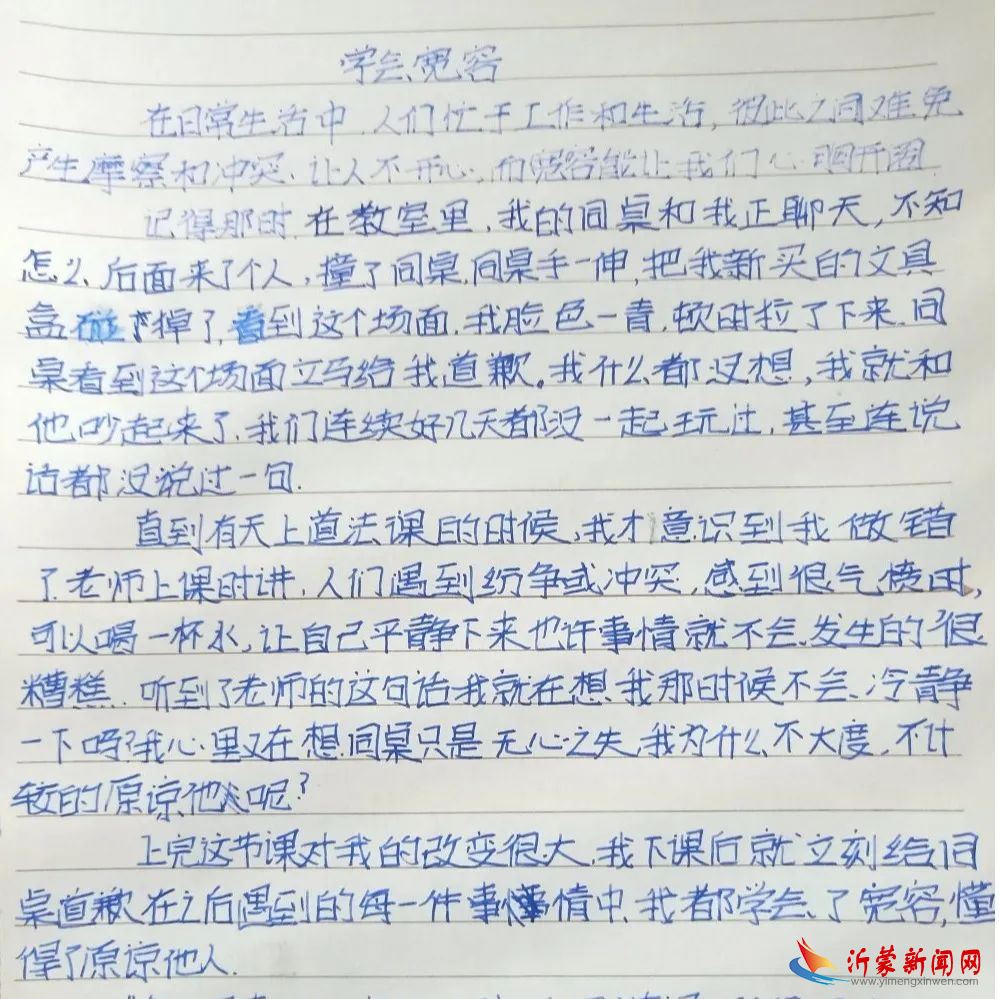 学会宽容
在日常生活中,人们忙于工作和生活,彼此之间难免
产生摩察和冲突.让人不开心,而宽容能让我们心胸开阔.
记得那时.在教室里,我的同桌和我正聊天,不知
怎么,后面来了个人,撞了同桌,同桌手一伸,把我新买的文具
盒碰掉了,看到这个场面.我脸色一青,顿时拉了下来.同
桌看到这个场面立马给我道歉。我什么都没想,我就和
他吵起来了.我们连续好几天都没一起玩过,甚至连说
话都没说过一句.
直到有天上道法课的时候,我才意识到我做错
了.老师上课时讲.人们遇到纷争或冲突,感到很气愤时,
可以喝一杯水,让自己平静下来也许事情就不会发生的很
糟糕.听到了老师的这句话我就在想.我那时候不会冷静
一下吗?我心里又在想.同桌只是无心之失,我为什么不大度,不计
较的原谅他人呢?
上完这节课对我的改变很大.我下课后就立刻给同
桌道歉在之后遇到的每一件事情中.我都学会了宽容,懂
得了原谅他人.
沂蒙新闻网
www.yimengxinwen.com